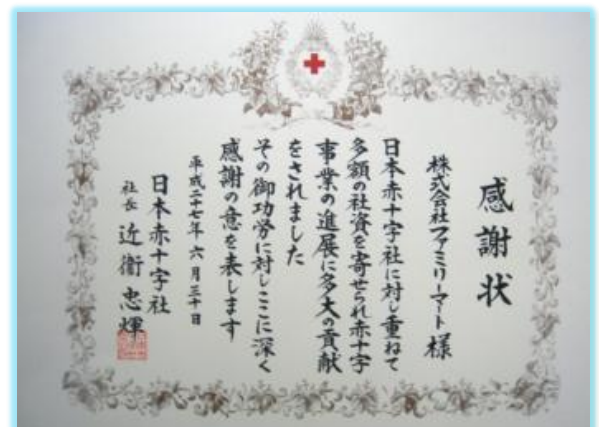 感謝状
株式会社ファミリーマート様
日本赤十字社に対し重ねて
多額の社資を寄せられ赤十字
事業の進展に多大の貢献
をされました
その御功労に対しここに深く
感謝の意を表します
平成二十七年六月三十日
日本赤十字社
社長 近衞忠煇